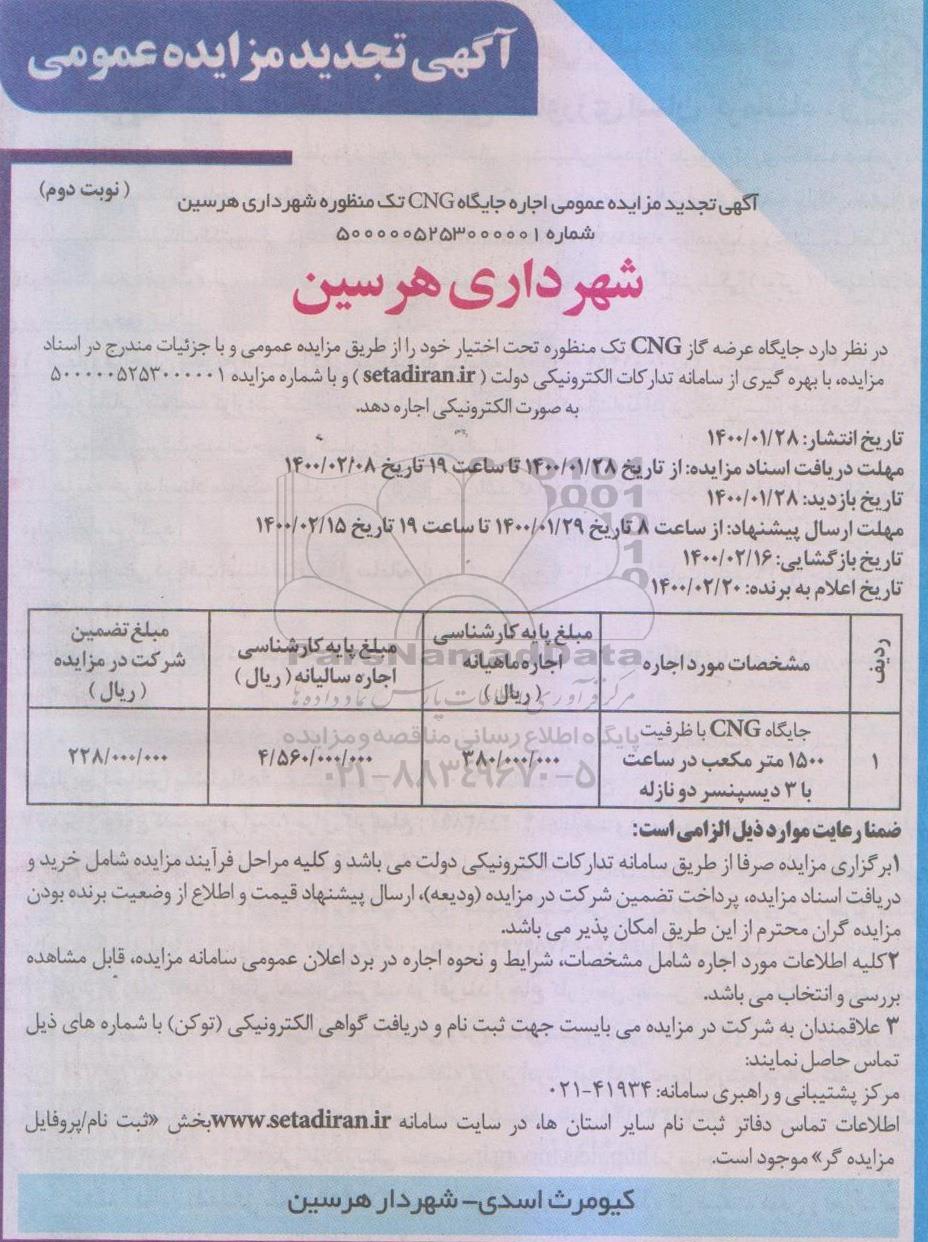 آگهی تجدید مزایده عمومی
(نوبت دوم)
آگهی تجدید مزایده عمومی اجاره جایگاه CNG تک منظوره شهرداری هرسین
شماره ۵۰۰۰۰۰۵۲۵۳۰۰۰۰۰۱
شهرداری هرسین
در نظر دارد جایگاه عرضه گاز CNG تک منظوره تحت اختیار خود را از طریق مزایده عمومی و با جزئیات مندرج در اسناد
مزایده، با بهره گیری از سامانه تدارکات الکترونیکی دولت (setadiran.ir) و با شماره مزایده ۵۰۰۰۰۰۵۲۵۳۰۰۰۰۰۱
به صورت الکترونیکی اجاره دهد.
تاریخ انتشار: ۱۴۰۰/۰۱/۲۸
مهلت دریافت اسناد مزایده: از تاریخ ۱۴۰۰/۰۱/۲۸ تا ساعت ۱۹ تاریخ ۱۴۰۰/۰۲/۰۸
تاریخ بازدید: ۱۴۰۰/۰۱/۲۸
مهلت ارسال پیشنهاد: از ساعت ۸ تاریخ ۱۴۰۰/۰۱/۲۹ تا ساعت ۱۹ تاریخ ۱۴۰۰/۰۲/۱۵
تاریخ بازگشایی: ۱۴۰۰/۰۲/۱۶
تاریخ اعلام به برنده: ۱۴۰۰/۰۲/۲۰
ردیف
مشخصات مورد اجاره
مبلغ پایه کارشناسی
اجاره ماهیانه
(ریال)
مبلغ پایه کارشناسی
اجاره سالیانه (ریال)
مبلغ تضمین
شرکت در مزایده
(ریال)
۱
جایگاه CNG با ظرفیت
۱۵۰۰ متر مکعب در ساعت
با ۳ دیسپنسر دو نازله
۳۸۰/۰۰۰/۰۰۰
۴/۵۶۰/۰۰۰/۰۰۰
۲۲۸/۰۰۰/۰۰۰
ParsNamadData
مرکز فرآوری اطلاعات پارس نماد داده ها
پایگاه اطلاع رسانی مناقصه و مزایده
۰۲۱-۸۸۳۴۹۶۷۰-۵
ضمنا رعایت موارد ذیل الزامی است:
۱برگزاری مزایده صرفا از طریق سامانه تدارکات الکترونیکی دولت می باشد و کلیه مراحل فرآیند مزایده شامل خرید و
دریافت اسناد مزایده، پرداخت تضمین شرکت در مزایده (ودیعه)، ارسال پیشنهاد قیمت و اطلاع از وضعیت برنده بودن
مزایده گران محترم از این طریق امکان پذیر می باشد.
۲کلیه اطلاعات مورد اجاره شامل مشخصات، شرایط و نحوه اجاره در برد اعلان عمومی سامانه مزایده، قابل مشاهده
بررسی و انتخاب می باشد.
۳ علاقمندان به شرکت در مزایده می بایست جهت ثبت نام و دریافت گواهی الکترونیکی (توکن) با شماره های ذیل
تماس حاصل نمایند:
مرکز پشتیبانی و راهبری سامانه: ۴۱۹۳۴-۰۲۱
اطلاعات تماس دفاتر ثبت نام سایر استان ها، در سایت سامانه www.setadiran.ir بخش «ثبت نام/پروفایل
مزایده گر» موجود است.
کیومرث اسدی- شهردار هرسین